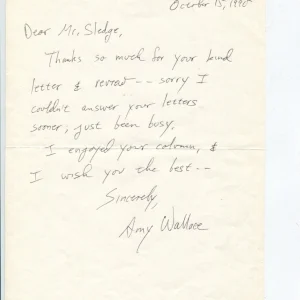 October 15, 1990
Dear Mr. Sledge,
Thanks so much for your kind
letter & review -- sorry I
couldn't answer your letters
sooner, just been busy.
I enjoyed your column, &
I wish you the best --
Sincerely,
Amy Wallace